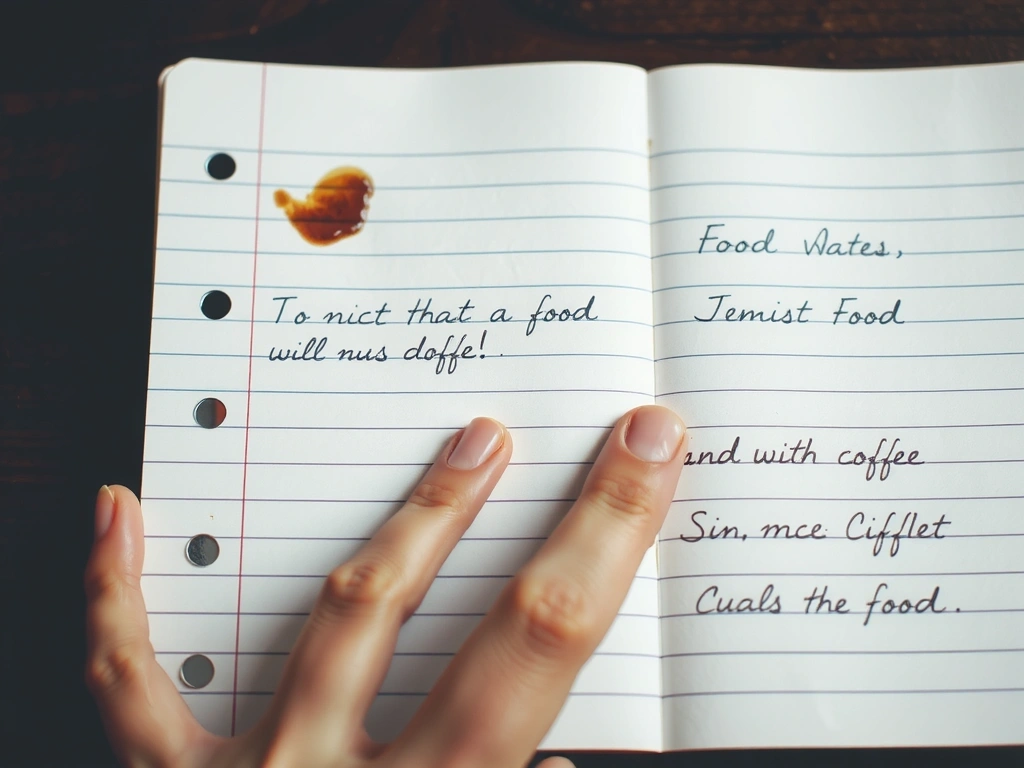 To nict that a food
will nus doffe!
Food
Jemist Food
and with coffee
Sin, mce Cifflet
Cuals the food.